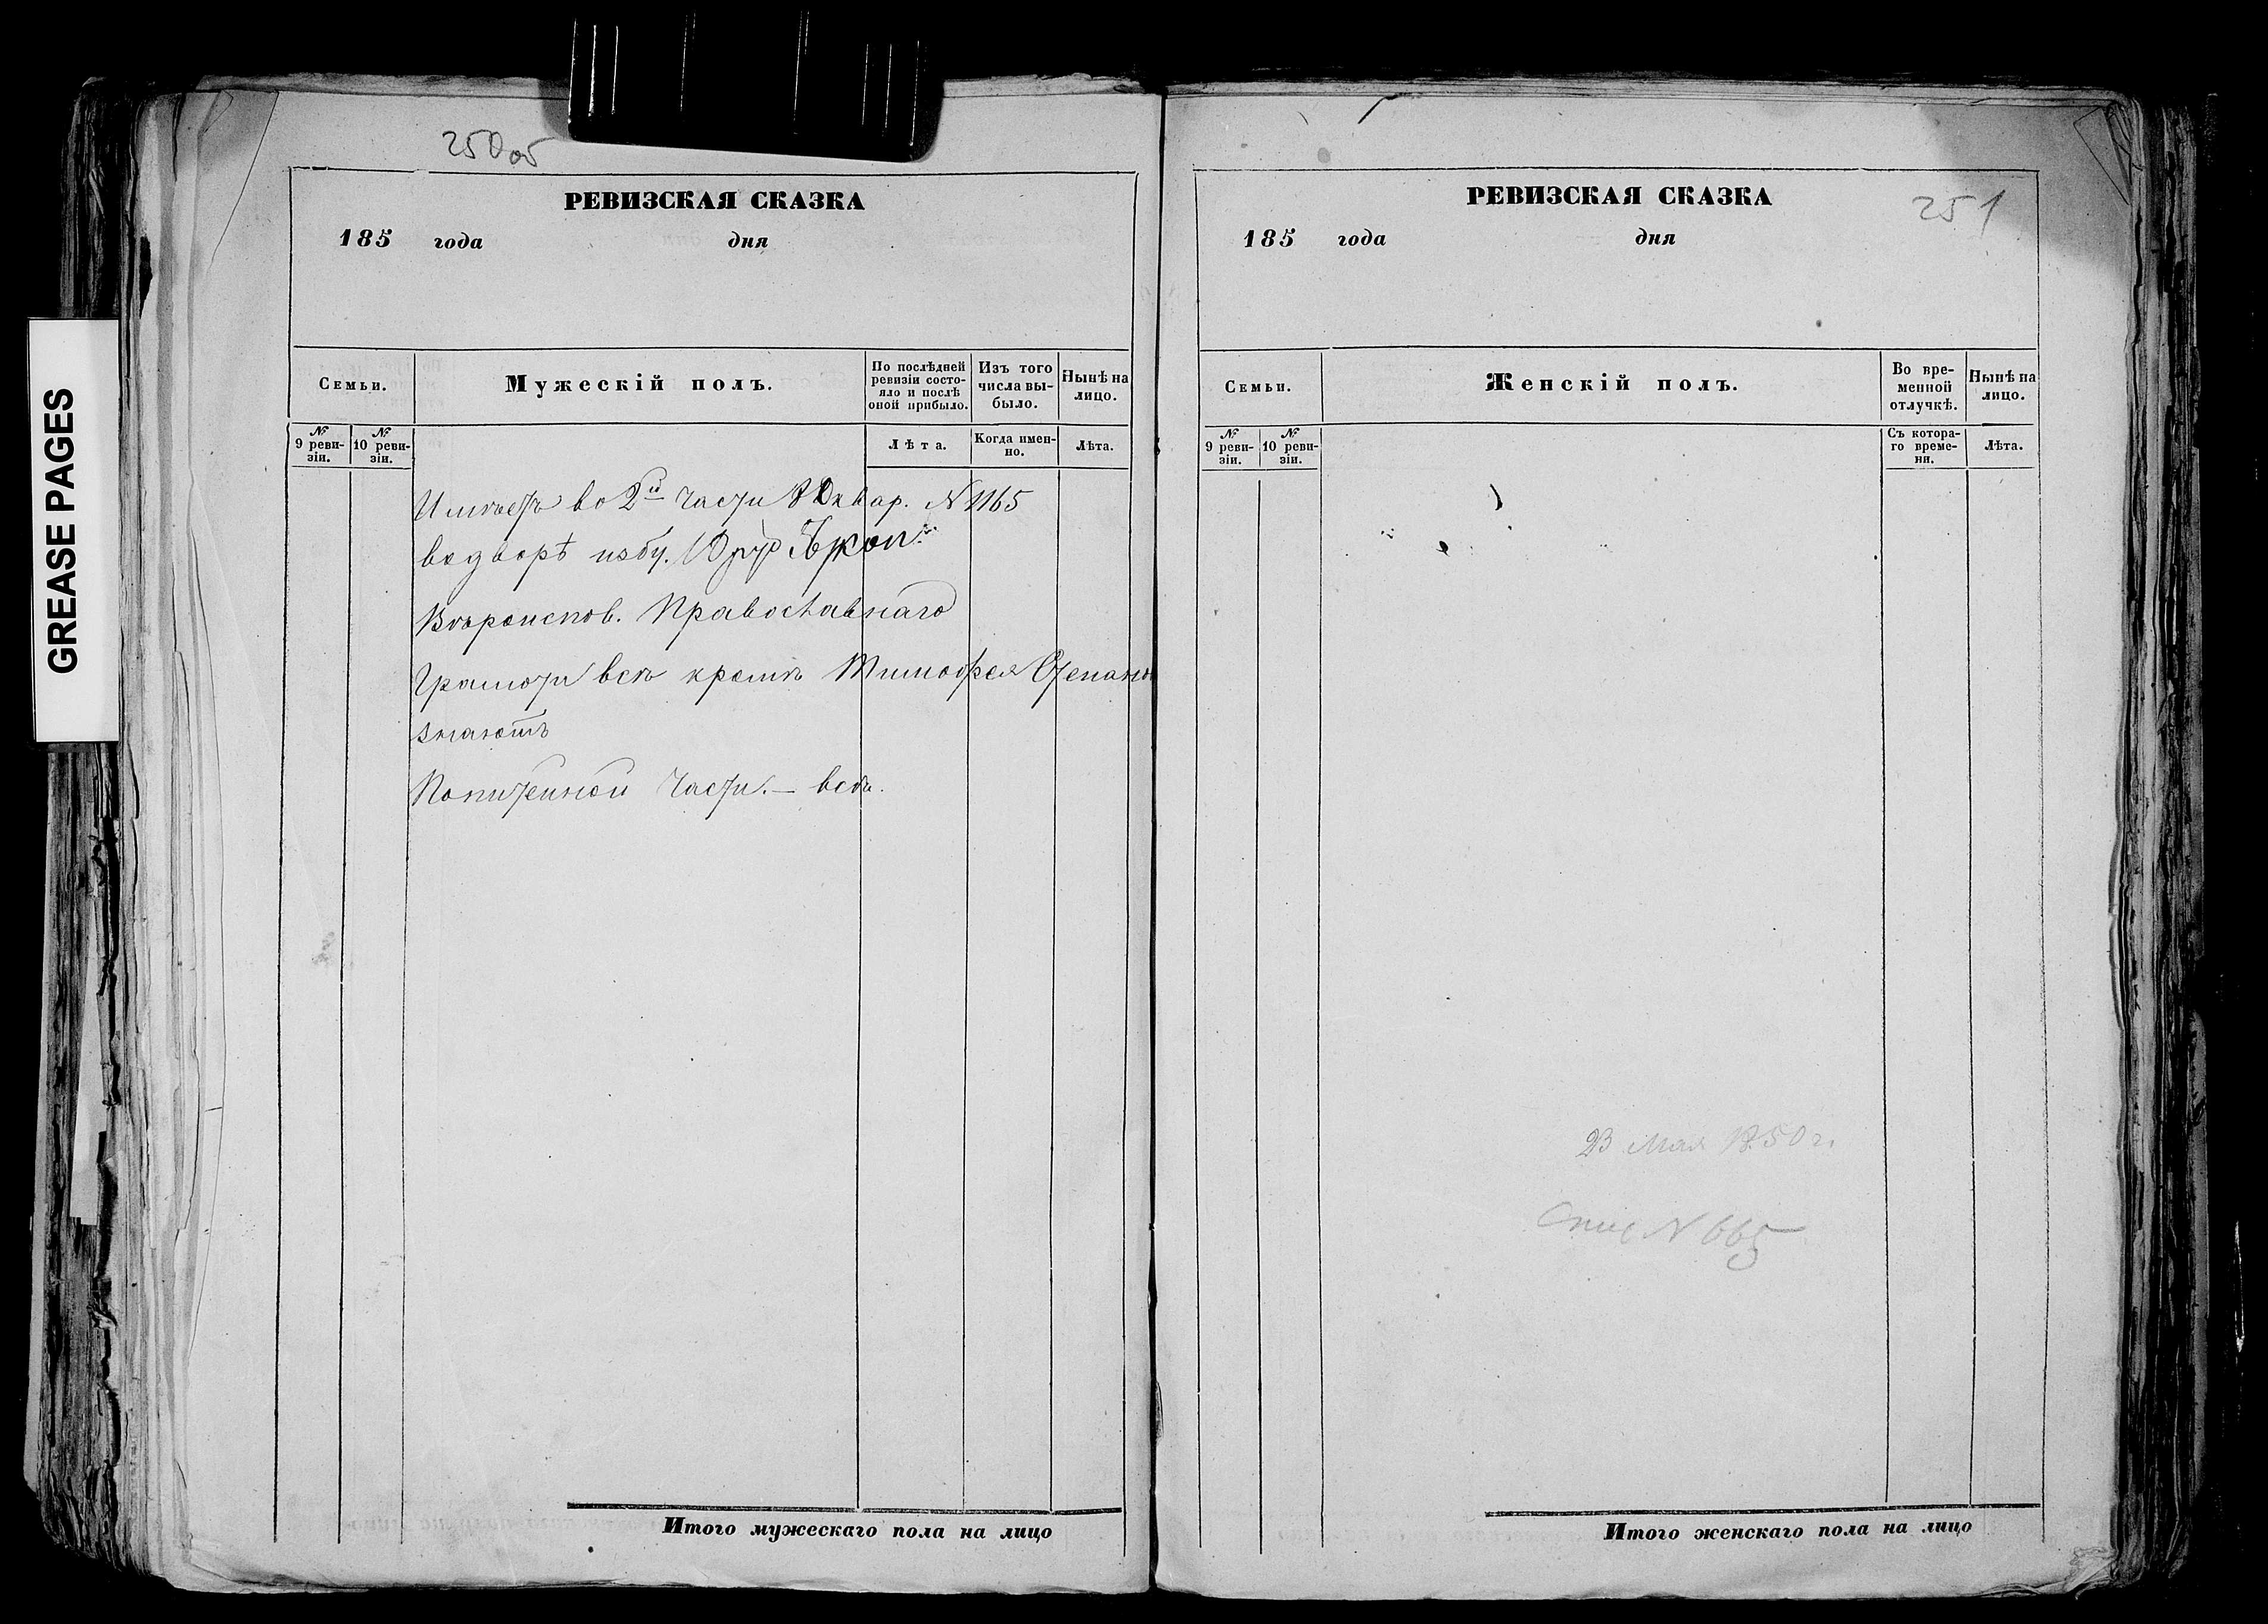 GREASE PAGES
250об
РЕВИЗСКАЯ СКАЗКА
185 года дня
Семьи.
Мужескій полъ.
По послѣдней ревизіи состояло и послѣ оной прибыло.
Изъ того числа выбыло.
Нынѣ на лицо.
№ 9 ревизіи.
№ 10 ревизіи.
Лѣта.
Когда именно.
Лѣта.
Имѣетъ во 2й части квар. N 1165
во дворѣ избу.
Вѣроиспов. Православнаго
Грамоти всѣ кромѣ Тимофея Степанов
знаютъ
Попитейной части. — всѣ.
Итого мужескаго пола на лицо
251
РЕВИЗСКАЯ СКАЗКА
185 года дня
Семьи.
Женскій полъ.
Во временной отлучкѣ.
Нынѣ на лицо.
№ 9 ревизіи.
№ 10 ревизіи.
Съ котораго времени.
Лѣта.
23 Мая 1850 г.
N 665
Итого женскаго пола на лицо